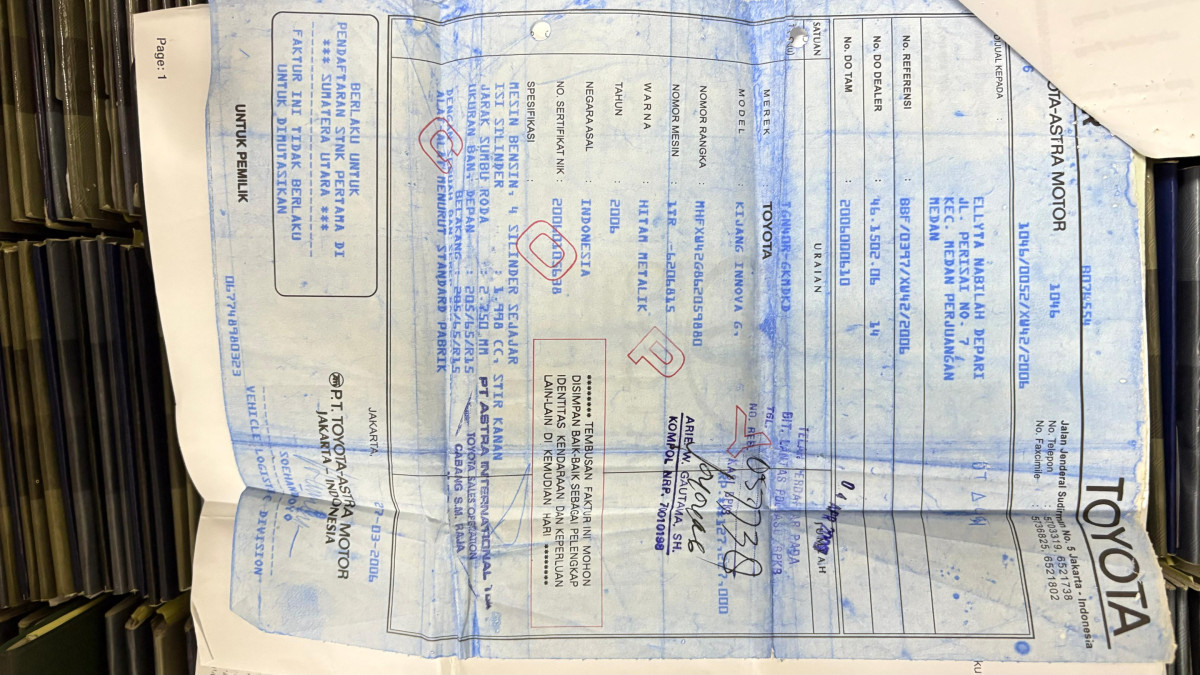 TOYOTA
OTA-ASTRA MOTOR
Jalan Jenderal Sudirman No. 5 Jakarta - Indonesia
No. Telepon : 5703319, 6521738
No. Faxcimile : 5736825, 6521802
1046
1046/0052/XW42/2006
DIJUAL KEPADA :
ELLYTA NABILAH DEPARI
JL. PERISAI NO. 7
KEC. MEDAN PERJUANGAN
MEDAN
No. REFERENSI : BBF/0397/XW42/2006
No. DO DEALER : 46.1502.06 14
No. DO TAM : 2006000610
SATUAN URAIAN
MEREK : TOYOTA
MODEL : KIJANG INNOVA G,
NOMOR RANGKA : MHFXW42G862059880
NOMOR MESIN : 1TR -6206815
WARNA : HITAM METALIK
TAHUN : 2006
NEGARA ASAL : INDONESIA
NO. SERTIFIKAT NIK :
SPESIFIKASI :
MESIN BENSIN, 4 SILINDER SEJAJAR
ISI SILINDER : 1.998 CC, STIR KANAN
JARAK SUMBU RODA : 2.750 MM
UKURAN BAN, DEPAN : 205/65/R15
BELAKANG : 205/65/R15
MENURUT STANDARD PABRIK
ARIE W. GAUTAMA, SH.
KOMPOL NRP. 71010198
******** TEMBUSAN FAKTUR INI MOHON
DISIMPAN BAIK-BAIK SEBAGAI PELENGKAP
IDENTITAS KENDARAAN DAN KEPERLUAN
LAIN-LAIN DI KEMUDIAN HARI ********
PT ASTRA INTERNATIONAL Tbk
TOYOTA SALES OPERATION
CABANG S.M. RAJA
C O P Y
BERLAKU UNTUK
PENDAFTARAN STNK PERTAMA DI
*** SUMATERA UTARA ***
FAKTUR INI TIDAK BERLAKU
UNTUK DIMUTASIKAN
JAKARTA,
P.T. TOYOTA-ASTRA MOTOR
JAKARTA - INDONESIA
UNTUK PEMILIK
VEHICLE LOGISTIC DIVISION
Page: 1